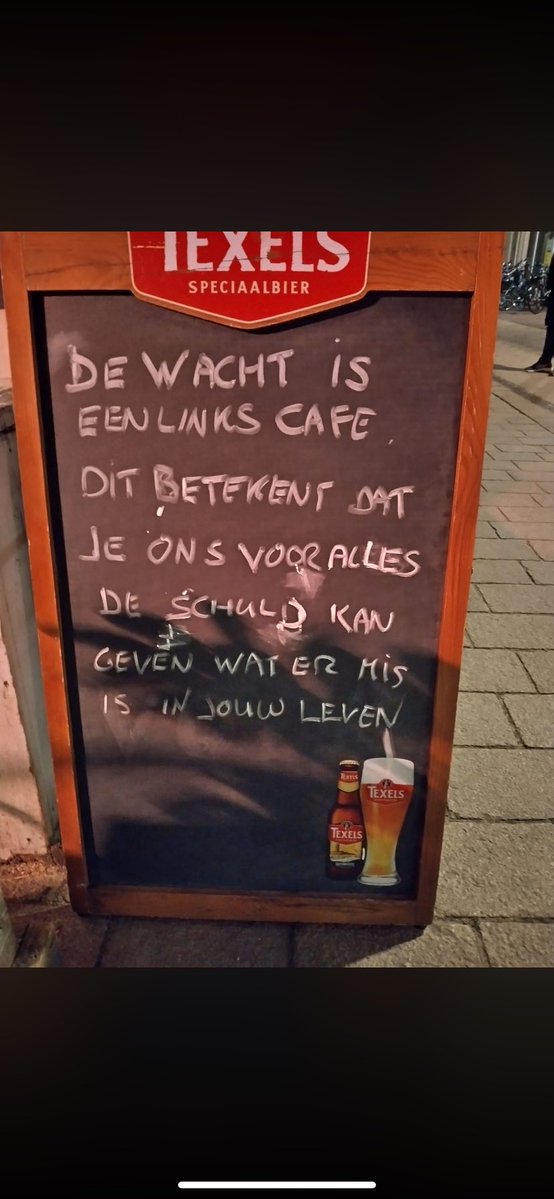 TEXELS
SPECIAALBIER
DE WACHT IS
EEN LINKS CAFE.
DIT BETEKENT DAT
JE ONS VOOR ALLES
DE SCHULD KAN
GEVEN WAT ER MIS
IS IN JOUW LEVEN
TEXELS
TEXELS
TEXELS